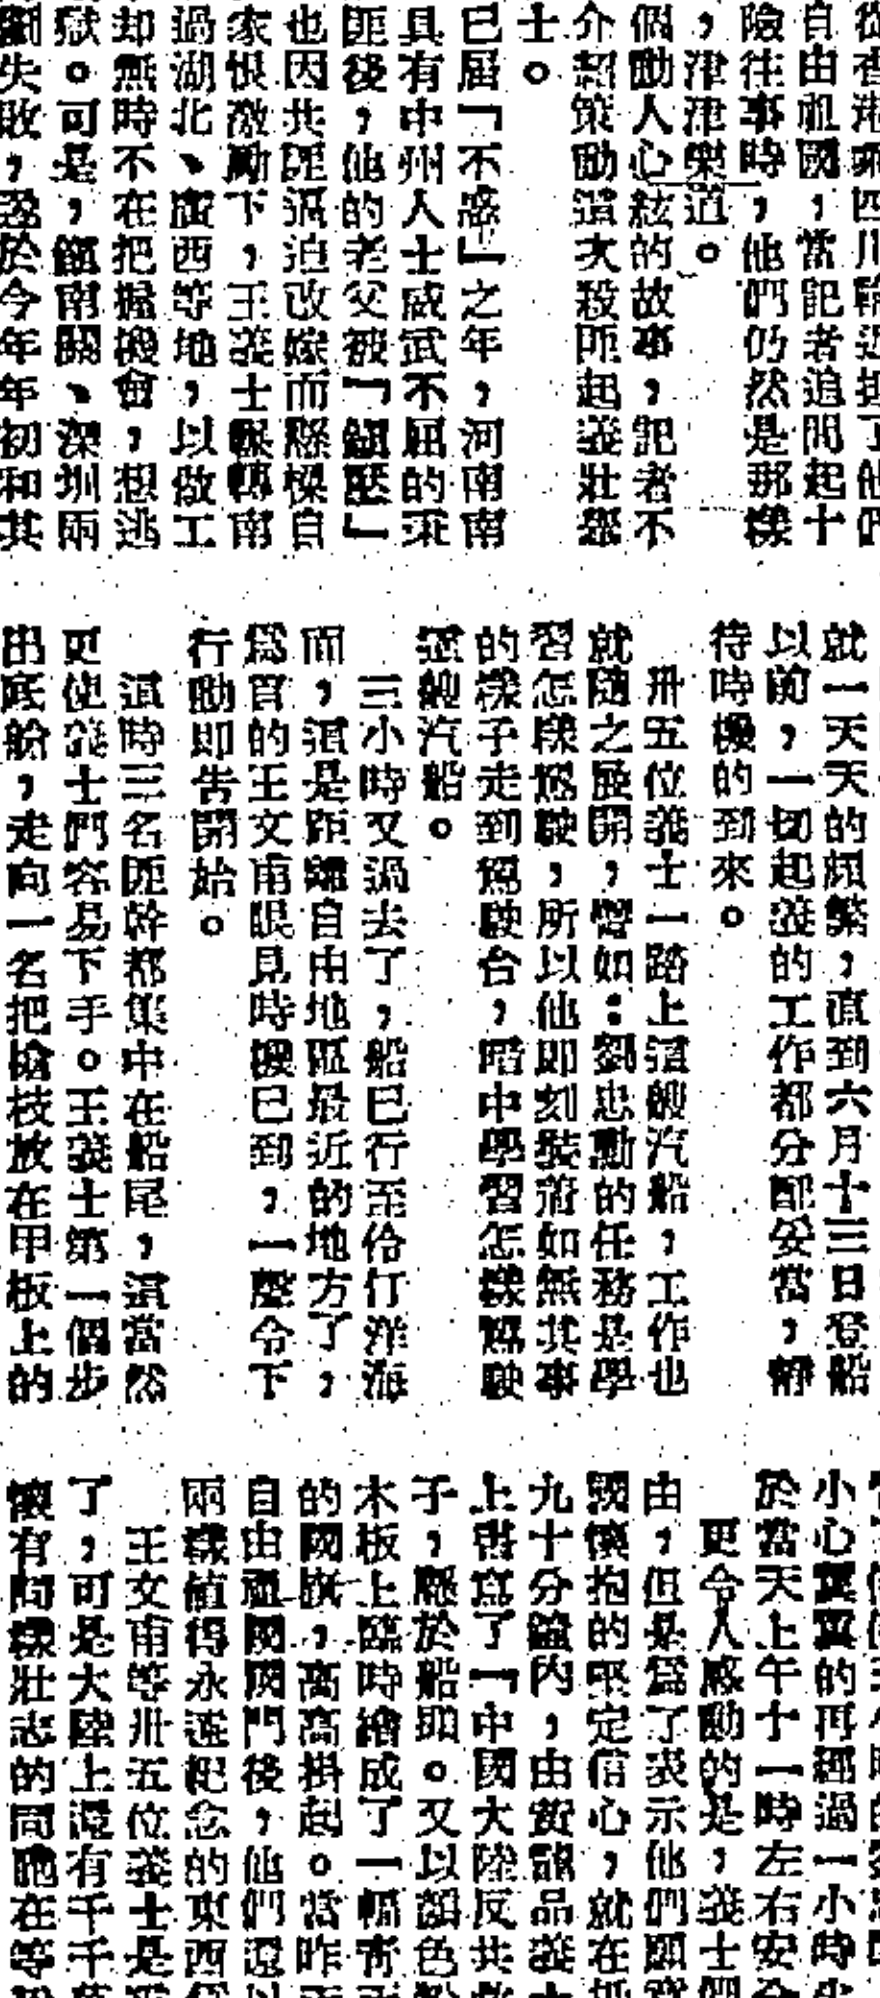 自由祖國，當記者追問起十
險往事時，他們仍然是那樣
，津津樂道。
個動人心絃的故事，記者不
介紹策動這次殺匪起義壯舉
士。
已屆「不惑」之年，河南南
具有中州人士威武不屈的秉
匪後，他的老父被「鎮壓」
也因共匪逼迫改嫁而懸樑自
家恨激勵下，王義士輾轉南
過湖北、廣西等地，以做工
却無時不在把握機會，想逃
獄。可是，鎮南關、深圳兩
失敗，於今年年初和其
就一天天的頻繁，直到六月十三日登船
以前，一切起義的工作都分配妥當，靜
待時機的到來。
卅五位義士一踏上這艘汽船，工作也
就隨之展開，譬如：劉忠勳的任務是學
習怎樣駕駛，所以他即刻裝着如無其事
的樣子走到駕駛台，暗中學習怎樣駕駛
這艘汽船。
三小時又過去了，船已行至伶仃洋海
面，這是距離自由地區最近的地方了，
為首的王文甫眼見時機已到，一聲令下
行動即告開始。
這時三名匪幹都集中在船尾，這當然
更使義士們容易下手。王義士第一個步
出底艙，走向一名把槍枝放在甲板上的
小心翼翼的再經過一小時
於當天上午十一時左右安
更令人感動的是，義士們
由，但是為了表示他們願
懷抱的堅定信心，就在
九十分鐘內，由黃品義
上書寫了「中國大陸反共
子，懸於船頭。又以顏色
木板上臨時繪成了一幅青
的國旗，高高掛起。當昨
自由祖國國門後，他們還以
兩樣值得永遠紀念的東西
王文甫等卅五位義士是
了，可是大陸上還有千千
懷有同樣壯志的同胞在等